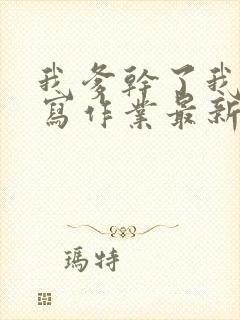 我爹幹了我
寫作業最新
瑪特